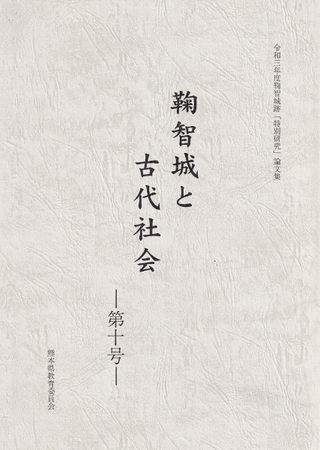 令和三年度鞠智城跡「特別研究」論文集
鞠智城と
古代社会
―第十号―
熊本県教育委員会